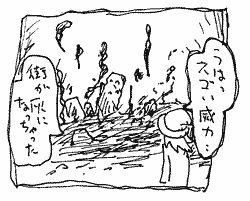 うはぁ、
エゴい威力…
街が灰に
なっちゃった